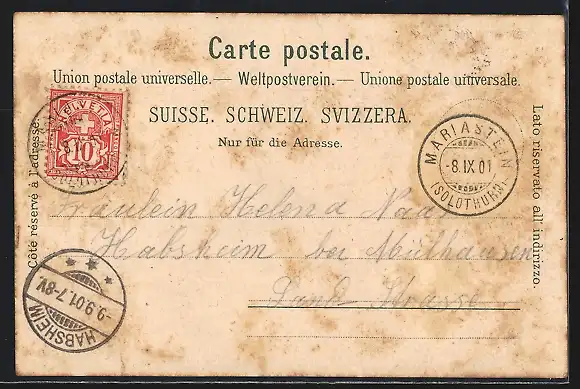 Carte postale.
Union postale universelle. — Weltpostverein. — Unione postale universale.
SUISSE. SCHWEIZ. SVIZZERA.
Nur für die Adresse.
Côté réservé à l'adresse.
Lato riservato all' indirizzo.
HELVETIA
10
MARIASTEIN
-8.IX.01
(SOLOTHURN)
Fräulein Helena
Habsheim bei Mülhausen
Land Strasse
9.9.01.7-8V.
HABSHEIM